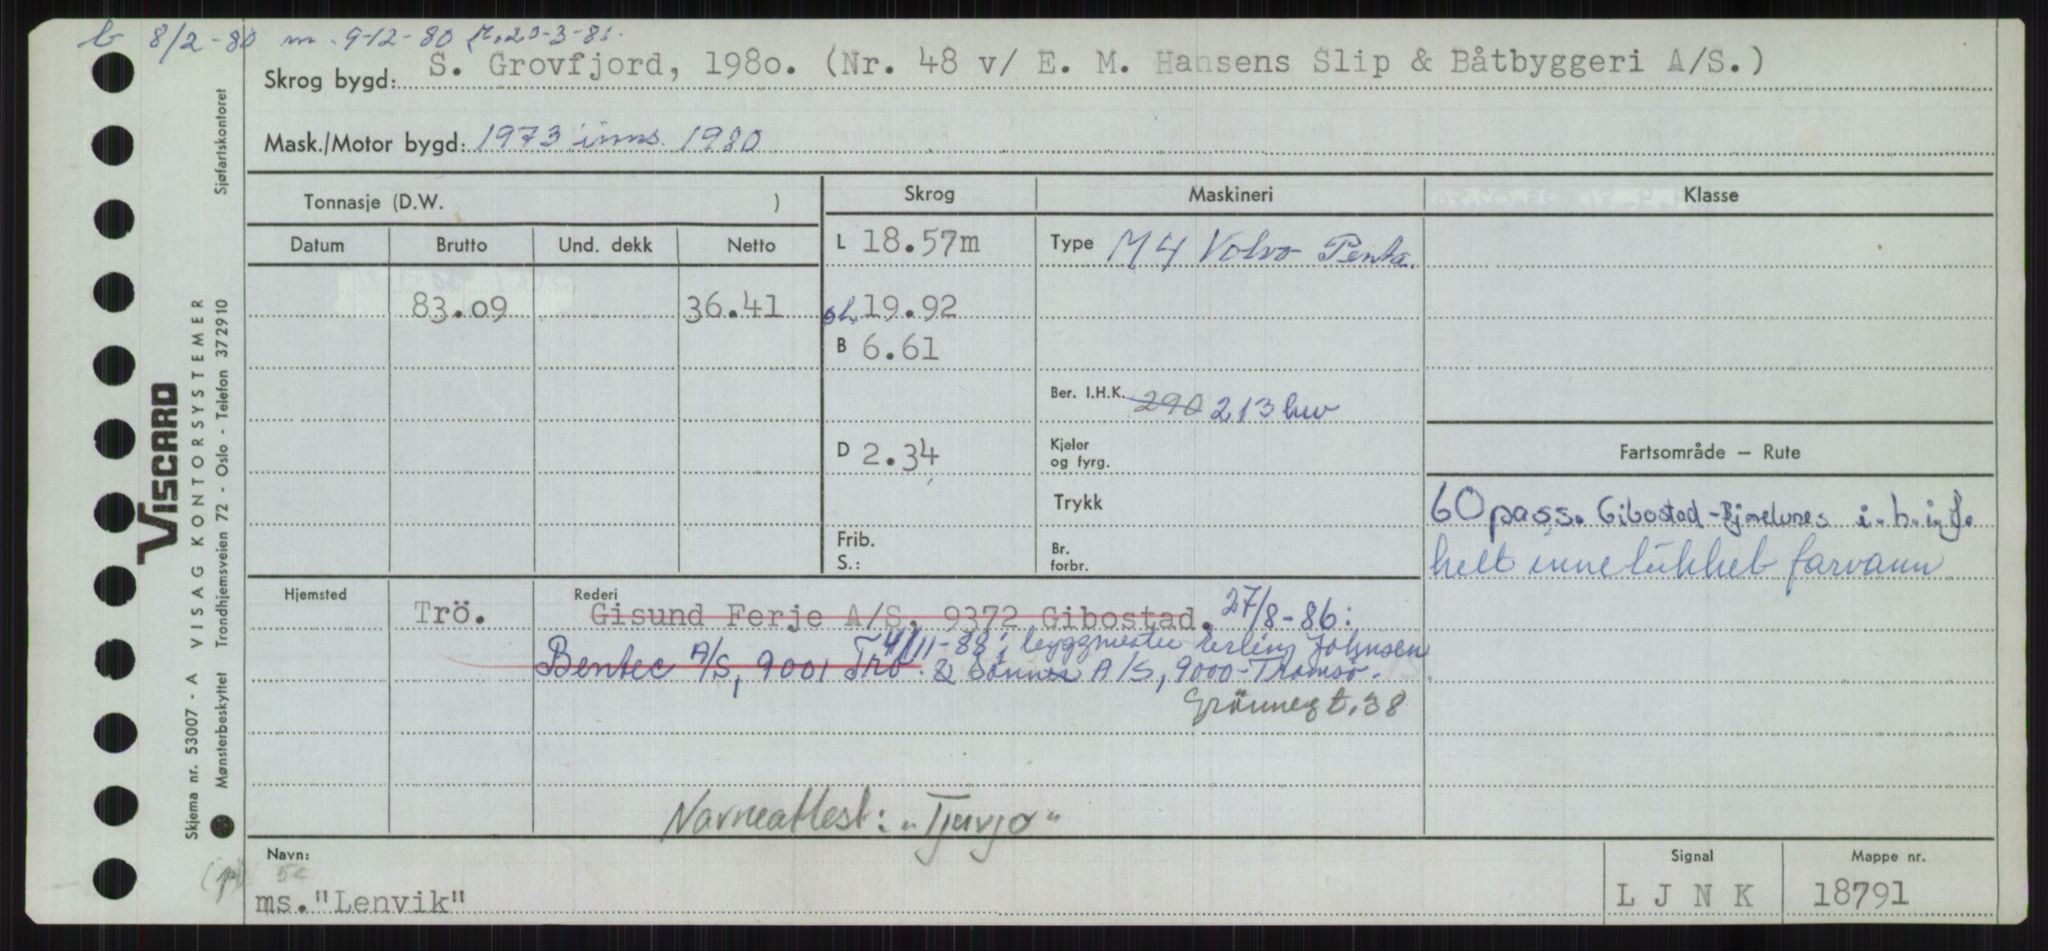 b 8/2-80 m. 9-12-80
Skrog bygd: S. Grovfjord, 1980. (Nr. 48 v/ E. M. Hansens Slip & Båtbyggeri A/S.)
Mask./Motor bygd: 1973 inns. 1980
Tonnasje (D.W. ) Skrog Maskineri Klasse
Datum Brutto Und. dekk Netto L 18.57m Type M4 Volvo Penta.
83.09 36.41 19.92
B 6.61
Ber. I.H.K. 290 213 kw
D 2.34 Kjeler
og fyrg.
Fartsområde — Rute
Trykk
60 pass. Gibostad - i.h.i.f.
Frib.
S.:
Br.
forbr.
helt innelukket farvann
Hjemsted Rederi
Trö. Gisund Ferje A/S, 9372 Gibostad. 27/8-86:
4/11-88: byggmester Erling Johnsen
Bentec A/S, 9001 Trö. & Sönner A/S, 9000-Tromsö.
Grönnegt. 38
Navneattest: "Tjuvjo"
Navn: Signal Mappe nr.
ms."Lenvik" L J N K 18791
VISCARD
VISAG KONTORSYSTEMER
Skjema nr. 53007 - A
Mønsterbeskyttet Trondhjemsveien 72 - Oslo - Telefon 372910
Sjøfartskontoret